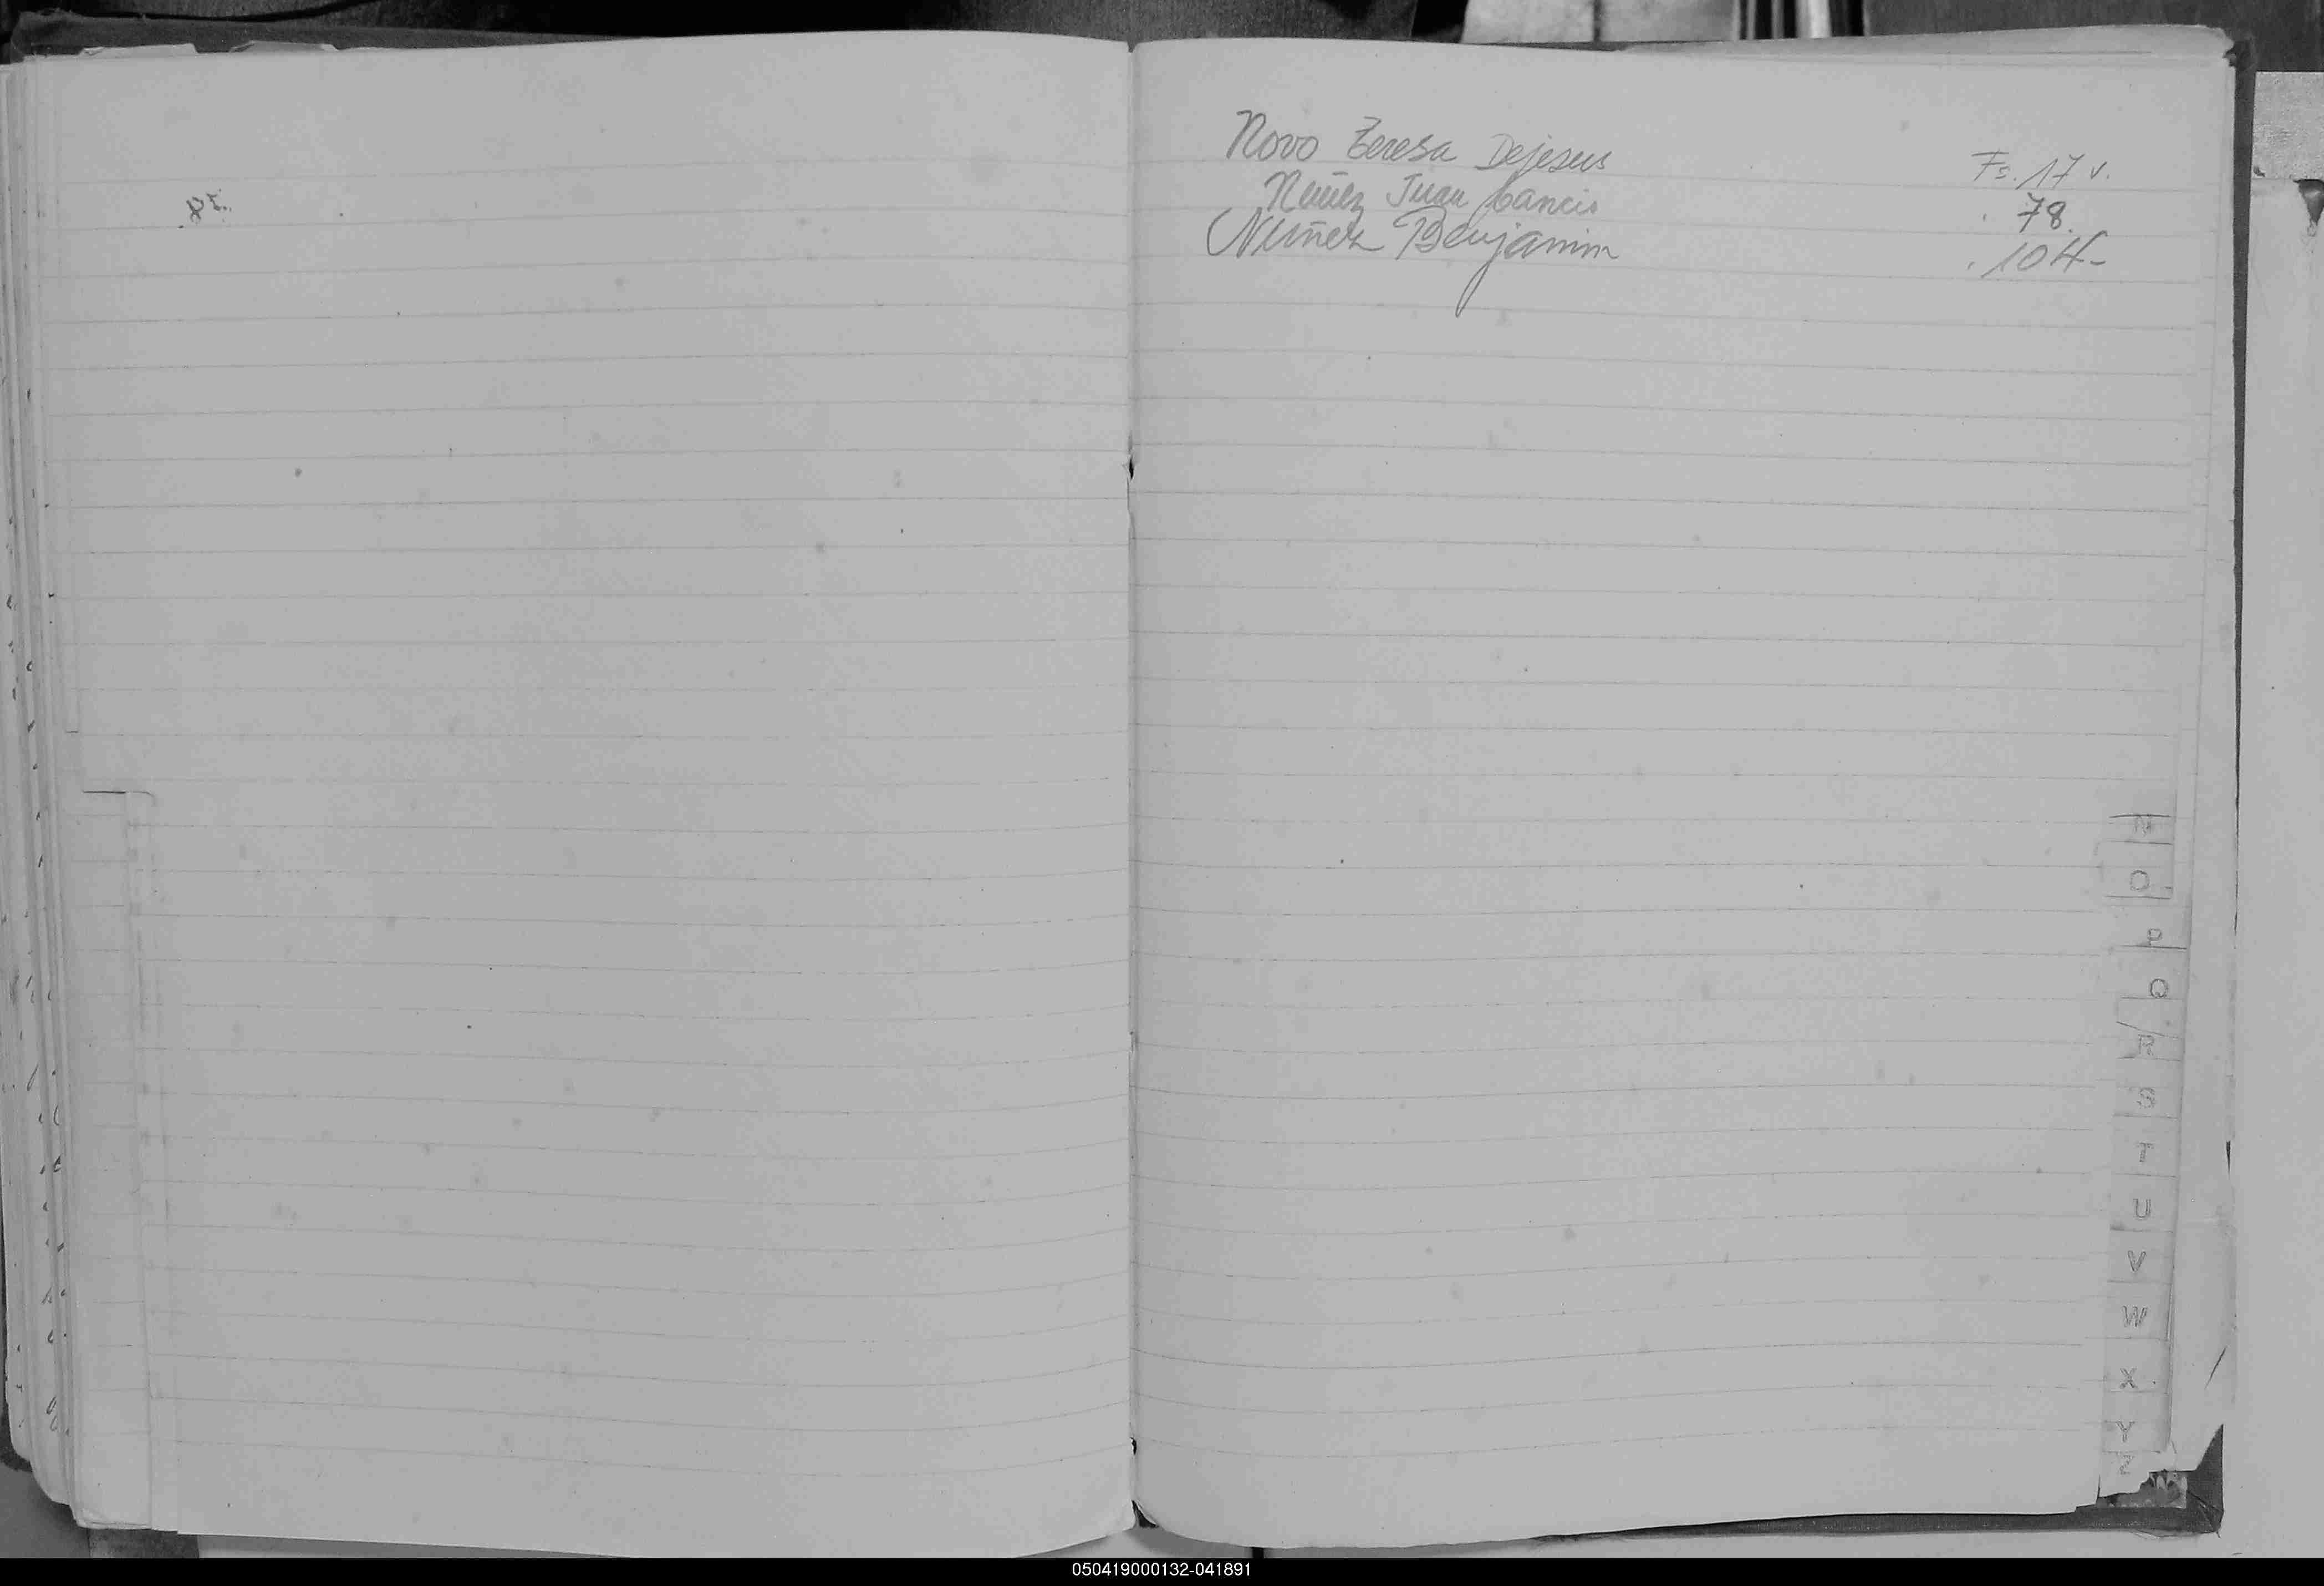 Novo Teresa Dejesus Fs. 17 v.
Nuñez Juan . 78.
Nuñez Benjamin . 104-
N
O
P
Q
R
S
T
U
V
W
X
Y
Z
050419000132-041891